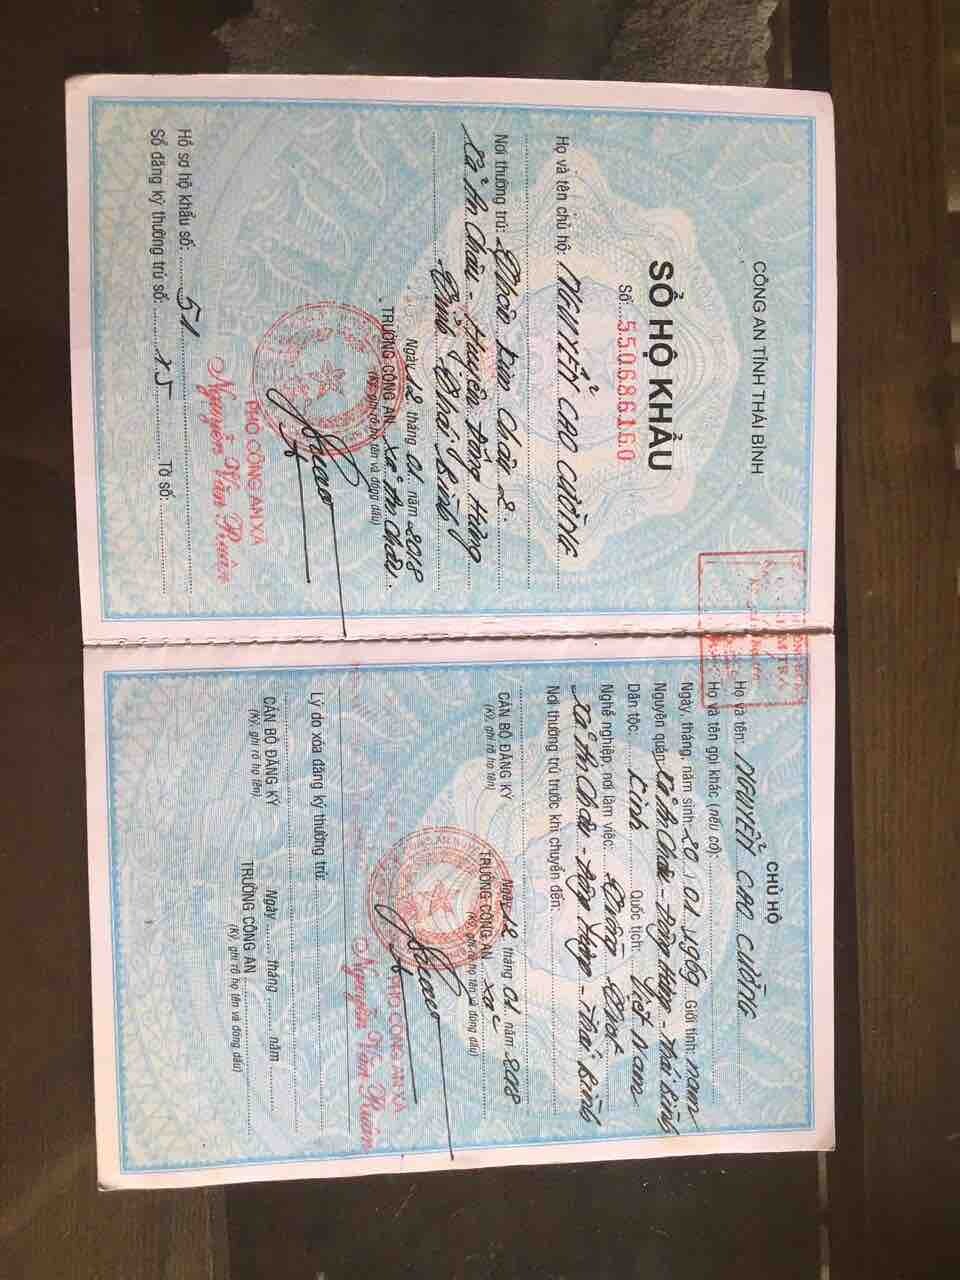 CÔNG AN TỈNH THÁI BÌNH
SỔ HỘ KHẨU
Số: 550686160
Họ và tên chủ hộ: NGUYỄN CAO CƯỜNG
Nơi thường trú: Thôn Kim Châu 2.
Xã An Châu - Huyện Đông Hưng
Tỉnh Thái Bình
Ngày 12 tháng 01 năm 2018
TRƯỞNG CÔNG AN xã An Châu.
(Ký, ghi rõ họ tên và đóng dấu)
PHÓ CÔNG AN XÃ
Nguyễn Văn Ruân
Hồ sơ hộ khẩu số: 51
Số đăng ký thường trú số: 25 Tờ số:
CHỦ HỘ
Họ và tên: NGUYỄN CAO CƯỜNG
Họ và tên gọi khác (nếu có):
Ngày, tháng, năm sinh: 20/01/1969 Giới tính: nam
Nguyên quán: Xã An Châu - Đông Hưng - Thái Bình
Dân tộc: Kinh Quốc tịch: Việt Nam
Nghề nghiệp, nơi làm việc:
Xã An Châu - Đông Hưng - Thái Bình
Nơi thường trú trước khi chuyển đến:
Ngày 12 tháng 01 năm 2018
CÁN BỘ ĐĂNG KÝ
(Ký, ghi rõ họ tên)
TRƯỞNG CÔNG AN xã
(Ký, ghi rõ họ tên và đóng dấu)
PHÓ CÔNG AN XÃ
Nguyễn Văn Ruân
Lý do xóa đăng ký thường trú:
Ngày tháng năm
CÁN BỘ ĐĂNG KÝ
(Ký, ghi rõ họ tên)
TRƯỞNG CÔNG AN
(Ký, ghi rõ họ tên và đóng dấu)